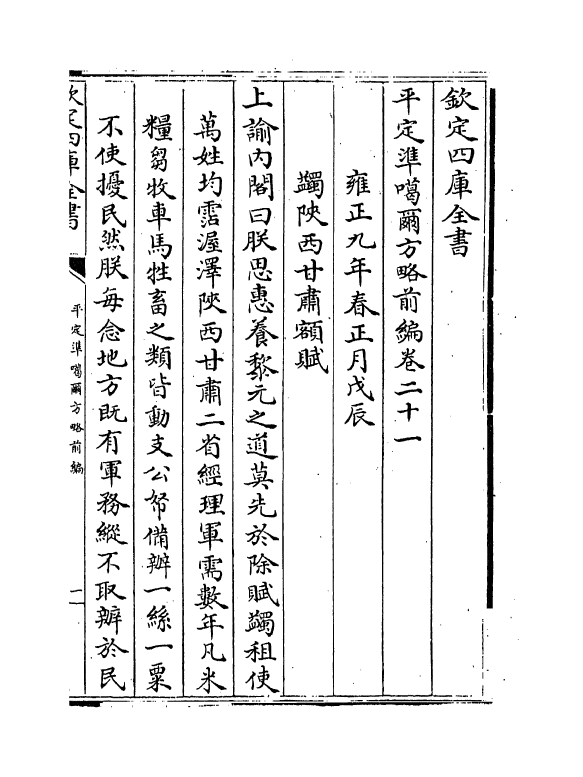 欽定四庫全書
平定準噶爾方略前編卷二十一
雍正九年春正月戊辰
蠲陜西甘肅額賦
上諭内閣曰朕思惠養黎元之道莫先於除賦蠲租使
萬姓均霑渥澤陜西甘肅二省經理軍需數年凡米
糧芻牧車馬牲畜之類皆動支公帑備辦一絲一粟
不使擾民然朕每念地方既有軍務縱不取辦於民
欽定四庫全書
平定準噶爾方略前編
一